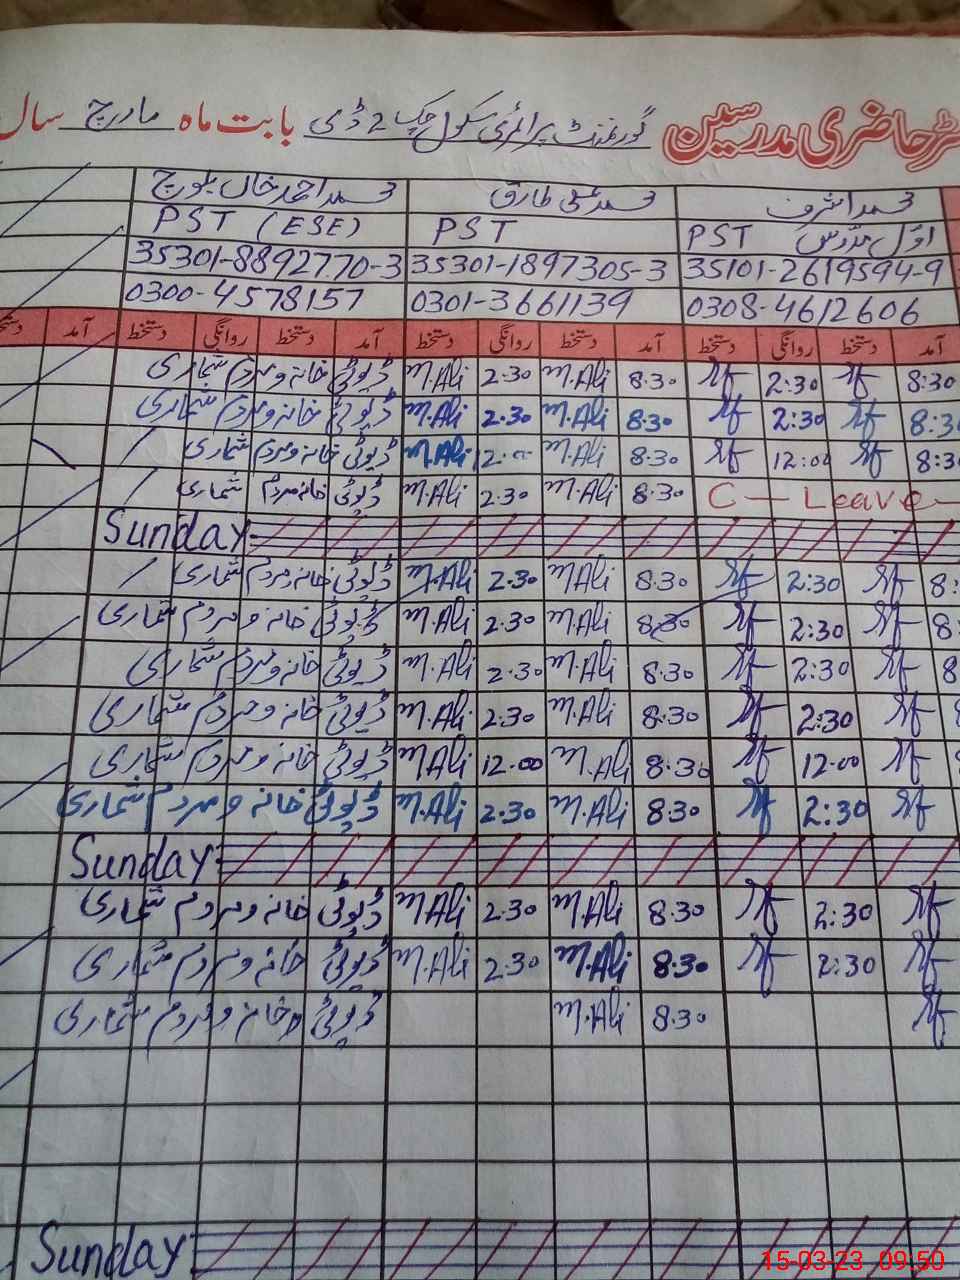 ٹر حاضری مدرسین گورنمنٹ پرائمری سکول چک 2 ڈی بابت ماہ مارچ سال
محمد اشرف محمد علی طارق محمد احمد خان بلوچ
اول مدرس PST PST PST (ESE)
35101-2619594-9 35301-1897305-3 35301-8892770-3
0308-4612606 0301-3661139 0300-4578157
آمد دستخط روانگی دستخط آمد دستخط روانگی دستخط آمد دستخط روانگی دستخط آمد
8:30 2:30 8.30 M.Ali 2.30 M.Ali ڈیوٹی خانہ و مردم شماری
8:30 2:30 8.30 M.Ali 2.30 M.Ali ڈیوٹی خانہ و مردم شماری
8:30 12:00 8.30 M.Ali 12.00 M.Ali ڈیوٹی خانہ و مردم شماری
C - Leave - 8.30 M.Ali 2.30 M.Ali ڈیوٹی خانہ مردم شماری
Sunday
8: 2:30 8.30 M.Ali 2.30 M.Ali ڈیوٹی خانہ مردم شماری
8: 2:30 8.30 M.Ali 2.30 M.Ali ڈیوٹی خانہ و مردم شماری
8 2:30 8.30 M.Ali 2.30 M.Ali ڈیوٹی خانہ و مردم شماری
2:30 8.30 M.Ali 2.30 M.Ali ڈیوٹی خانہ و مردم شماری
12.00 8.30 M.Ali 12.00 M.Ali ڈیوٹی خانہ و مردم شماری
2:30 8.30 M.Ali 2.30 M.Ali ڈیوٹی خانہ و مردم شماری
Sunday
2:30 8.30 M.Ali 2.30 M.Ali ڈیوٹی خانہ و مردم شماری
2:30 8.30 M.Ali 2.30 M.Ali ڈیوٹی خانہ و مردم شماری
8.30 M.Ali ڈیوٹی خانہ و مردم شماری
Sunday
15-03-23 09:50